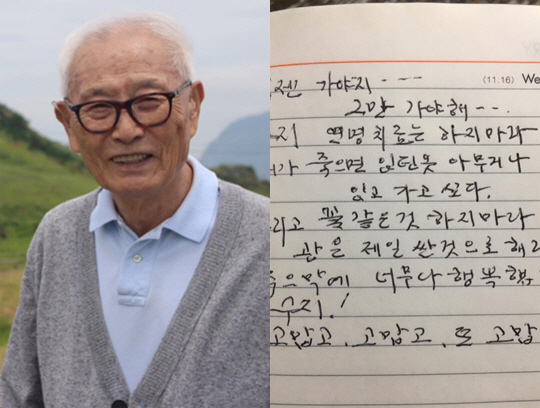 (11.16) We
젠 가야지 - - -
그만 가야해 - - .
지 연명치료는 하지마라
가 죽으면 입던옷 아무거나
입고 가고 싶다.
리고 꽃 같은것 하지마라
관은 제일 싼것으로 해라
막에 너무나 행복했
고맙고, 고맙고, 또 고맙